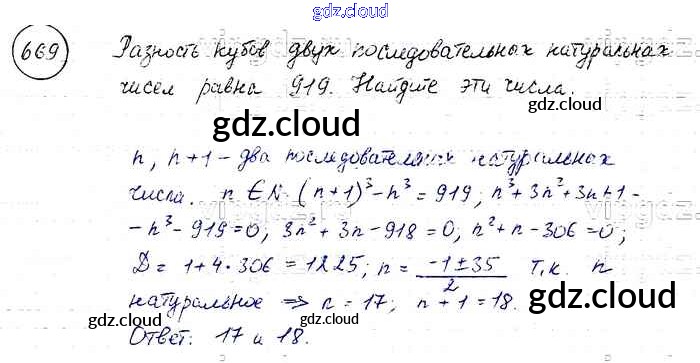 gdz.cloud
669 Разность кубов двух последовательных натуральных
чисел равна 919. Найдите эти числа.
gdz.cloud
gdz.cloud
n, n+1 - два последовательных натуральных
числа. n ∈ N. (n+1)³-n³=919; n³+3n²+3n+1-
-n³-919=0; 3n²+3n-918=0; n²+n-306=0;
D=1+4·306=1225; n=(-1±35)/2 т.к. n
натуральное => n=17; n+1=18.
gdz.cloud
gdz.cloud
Ответ: 17 и 18.
gdz.cloud